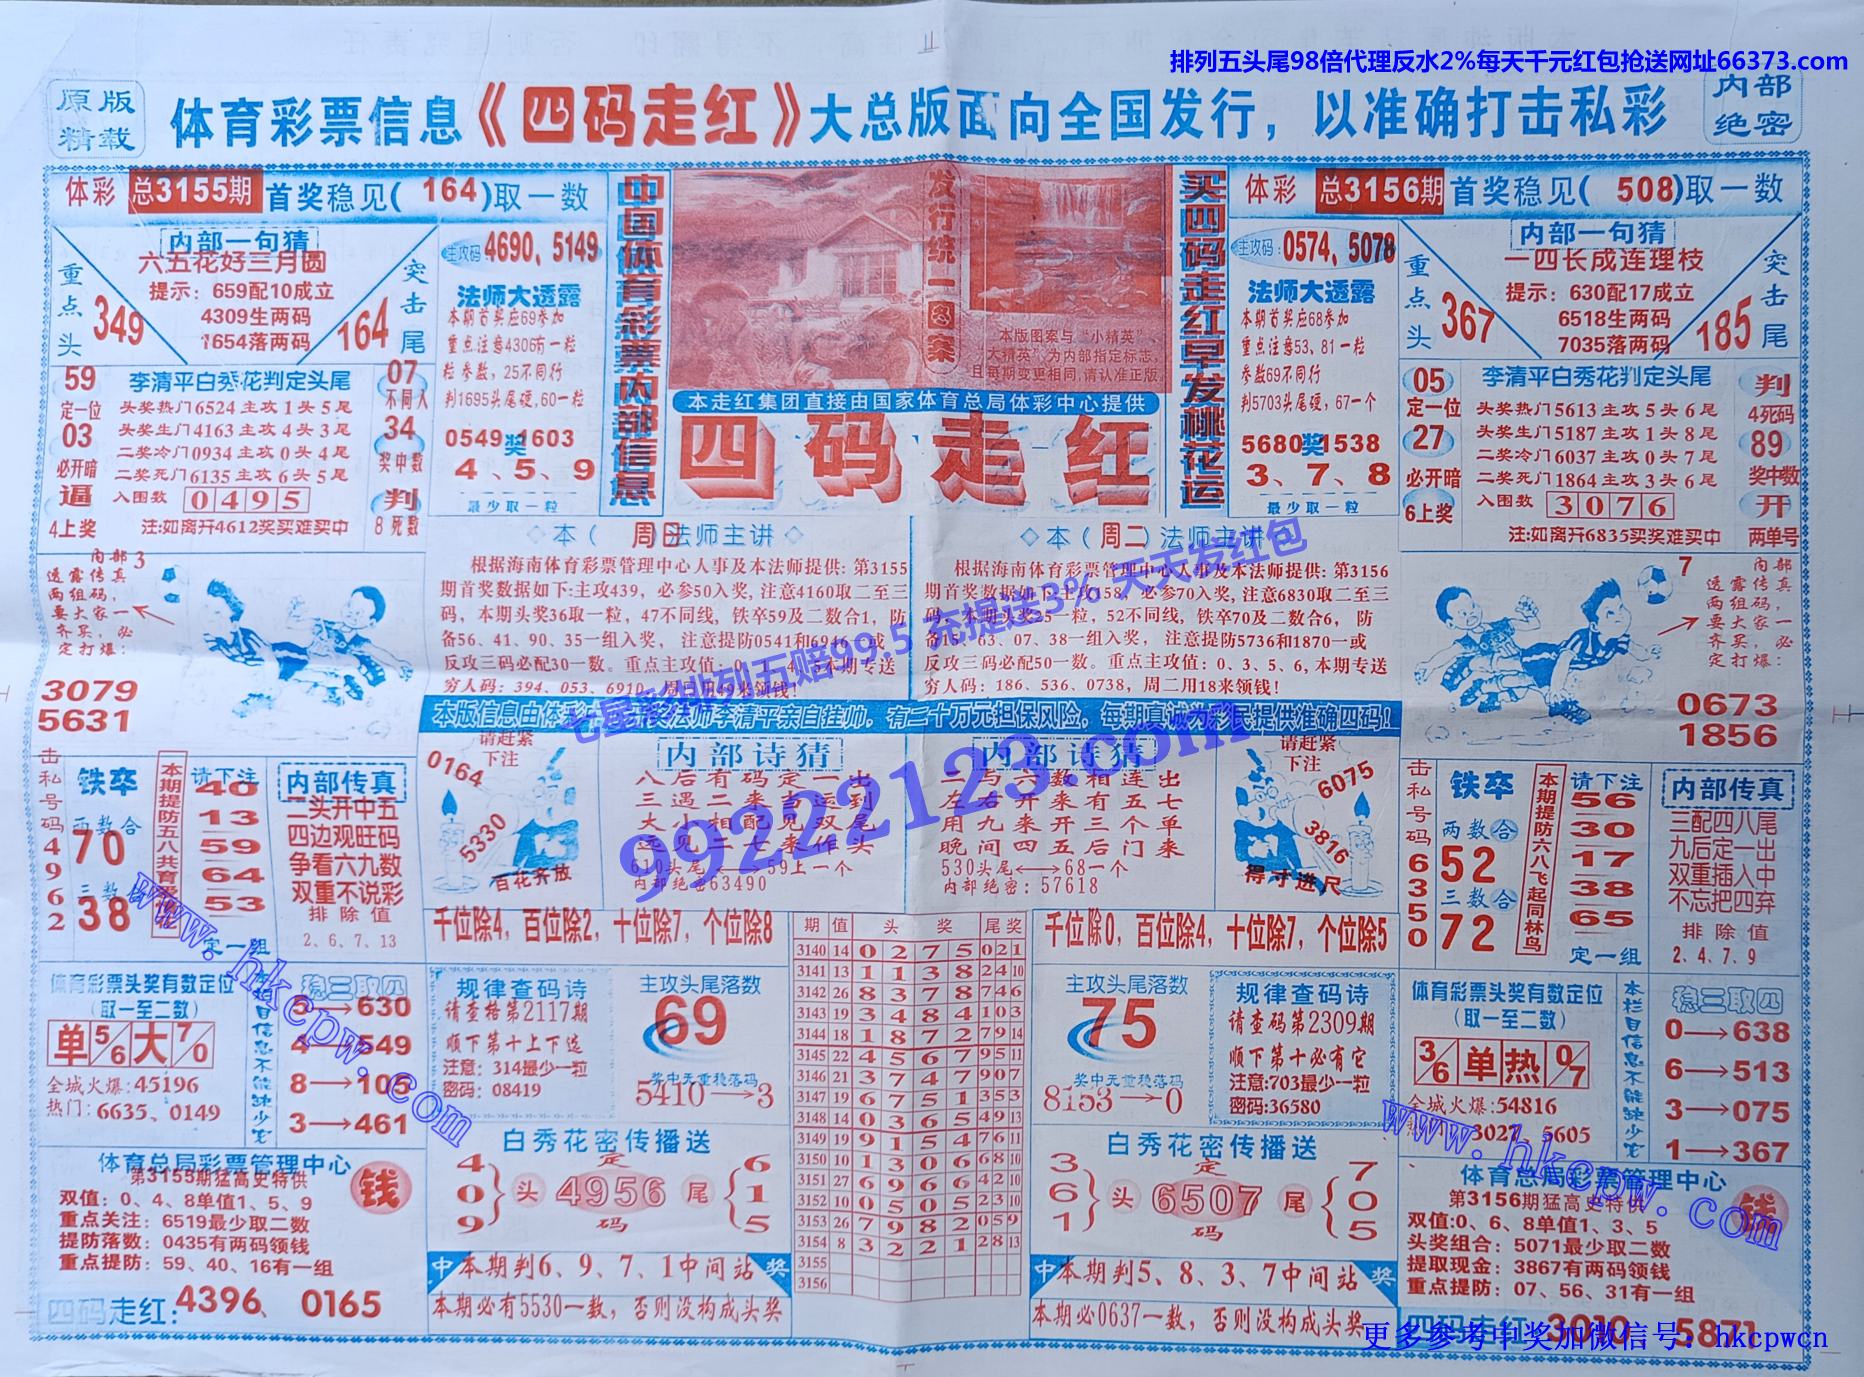 排列五头尾98倍代理反水2%每天千元红包抢送网址66373.com
原版
精载
体育彩票信息《四码走红》大总版面向全国发行，以准确打击私彩
内部
绝密
体彩 总3155期 首奖稳见( 164 )取一数
内部一句猜
六五花好三月圆
提示：659配10成立
4309生两码
1654落两码
重点头
349
突击尾
164
主攻码
4690、5149
法师大透露
本期首奖应69参加
重点注意4306有一粒
粒参数，25不同行
判1695头尾硬,60一粒
0549 奖 1603
4、5、9
最少取一粒
59
定一位
03
必开暗
逼
4上奖
李清平白秀花判定头尾
头奖热门6524主攻1头5尾
头奖生门4163主攻4头3尾
二奖冷门0934主攻0头4尾
二奖死门6135主攻6头5尾
入围数 0495
注:如离开4612奖买难买中
07
不同人
34
奖中数
判
8死数
中国体育彩票内部信息
发行统一图案
本版图案与“小精英”、
大精英”为内部指定标志，
且每期变更相同,请认准正版
本走红集团直接由国家体育总局体彩中心提供
四码走红
买四码走红早发桃花运
体彩 总3156期 首奖稳见( 508 )取一数
内部一句猜
一四长成连理枝
提示：630配17成立
6518生两码
7035落两码
重点头
367
突击尾
185
主攻码:
0574、5078
法师大透露
本期首奖应68参加
重点注意53、81一粒
参数69不同行
判5703头尾硬，67一个
5680 奖 1538
3、7、8
最少取一粒
05
定一位
27
必开暗
6上奖
李清平白秀花判定头尾
头奖热门5613主攻5头6尾
头奖生门5187主攻1头8尾
二奖冷门6037主攻0头7尾
二奖死门1864主攻3头6尾
入围数 3076
注:如离开6835买奖难买中
判
4死码
89
奖中数
开
两单号
内部 3
透露传真
两组码，
要大家一
齐买，必
定打爆：
3079
5631
◇本（ 周日 法师主讲◇
根据海南体育彩票管理中心人事及本法师提供: 第3155
期首奖数据如下:主攻439，必参50入奖, 注意4160取二至三
码，本期头奖36取一粒，47不同线，铁卒59及二数合1，防
备56、41、90、35一组入奖， 注意提防0541和6946一或
反攻三码必配30一数。重点主攻值: 0、1、4、5本期专送
穷人码: 394、053、6910，周日用49来领钱!
◇本（ 周二 ）法师主讲
根据海南体育彩票管理中心人事及本法师提供: 第3156
期首奖数据如下:主攻158，必参70入奖, 注意6830取二至三
码，本期头奖25一粒，52不同线，铁卒70及二数合6，防
备15、63、07、38一组入奖， 注意提防5736和1870一或
反攻三码必配50一数。重点主攻值: 0、3、5、6, 本期专送
穷人码: 186、536、0738，周二用18来领钱!
7 内部
透露传真
两组码，
要大家一
齐买，必
定打爆：
0673
1856
七星彩排列五赔99.5 充提送3% 天天发红包
99222123.com
击私号码49962
铁卒
两数合
70
三数
38
请下注
40
13
59
64
53
定一组
内部传真
二头开中五
四边观旺码
争看六九数
双重不说彩
排除值
2、6、7、13
请赶紧
下注
0164
5330
百花齐放
内部诗猜
八后有码定一出
三遇二来吉运到
大小相配见双尾
远见二七来作头
610头尾←→59上一个
内部绝密63490
内部诗猜
二与六数相连出
左右开来有五七
用九来开三个单
晚间四五后门来
530头尾←→68一个
内部绝密：57618
请赶紧
下注
6075
3816
得寸进尺
击私号码6350
铁卒
两数合
52
三数合
72
本期提防六八飞起同林鸟
请下注
56
30
17
38
65
定一组
内部传真
三配四八尾
九后定一出
双重插入中
不忘把四弃
排除值
2、4、7、9
千位除4，百位除2，十位除7，个位除8
千位除0，百位除4，十位除7，个位除5
体育彩票头奖有数定位
(取一至二数)
单 5/6 大 7/0
全城火爆:45196
热门：6635、0149
本栏目信息不能缺少它
稳三取四
5→630
4→549
8→105
3→461
规律查码诗
请查格第2117期
顺下第十上下选
注意：314最少一粒
密码：08419
主攻头尾落数
69
奖中无重稳落码
5410→3
期 值 头 奖 尾 奖
3140 14 0 2 7 5 0 2 1
3141 13 1 1 3 8 2 4 10
3142 26 8 3 7 8 7 4 6
3143 19 3 4 8 4 1 0 3
3144 18 1 8 7 2 7 9 14
3145 22 4 5 6 7 9 5 11
3146 21 3 7 4 7 9 0 7
3147 19 6 7 5 1 3 5 3
3148 14 0 3 6 5 4 9 13
3149 19 9 1 5 4 7 6 11
3150 10 1 3 0 6 6 8 10
3151 27 6 9 6 6 4 2 10
3152 10 0 5 0 5 2 3 10
3153 26 7 9 8 2 0 5 9
3154 8 3 2 2 1 2 8 13
3155
3156
主攻头尾落数
75
奖中无重稳落码
8153→0
规律查码诗
请查码第2309期
顺下第十必有它
注意:703最少一粒
密码:36580
体育彩票头奖有数定位
(取一至二数)
3/6 单 热 0/7
全城火爆:54816
3027、5605
本栏目信息不能缺少它
稳三取四
0→638
6→513
3→075
1→367
www.hkcpw.com
www.hkcpw.com
体育总局彩票管理中心
第3155期猛高史特供
双值：0、4、8单值1、5、9
重点关注：6519最少取二数
提防落数：0435有两码领钱
重点提防：59、40、16有一组
钱
四码走红: 4396、 0165
白秀花密传播送
4
0
9
头
定
4956
码
尾
6
1
5
中 本期判6、9、7、1中间站 奖
本期必有5530一数，否则没构成头奖
白秀花密传播送
3
6
1
头
定
6507
码
尾
7
0
5
中 本期判5、8、3、7中间站 奖
本期必0637一数，否则没构成头奖
体育总局彩票管理中心
第3156期猛高史特供
双值:0、6、8单值1、3、5
头奖组合：5071最少取二数
提取现金：3867有两码领钱
重点提防：07、56、31有一组
钱
四码走红 3010 5871
更多参考中奖加微信号：hkcpwcn